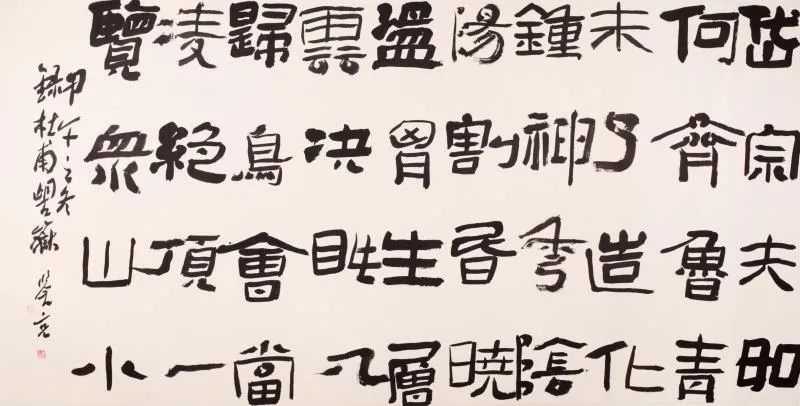 岱宗夫如
何齊魯青
未了造化
鍾神秀陰
陽割昏曉
盪胷生層
雲決眦入
歸鳥會當
凌絶頂一
覽眾山小
甲午之冬
錄杜甫望嶽